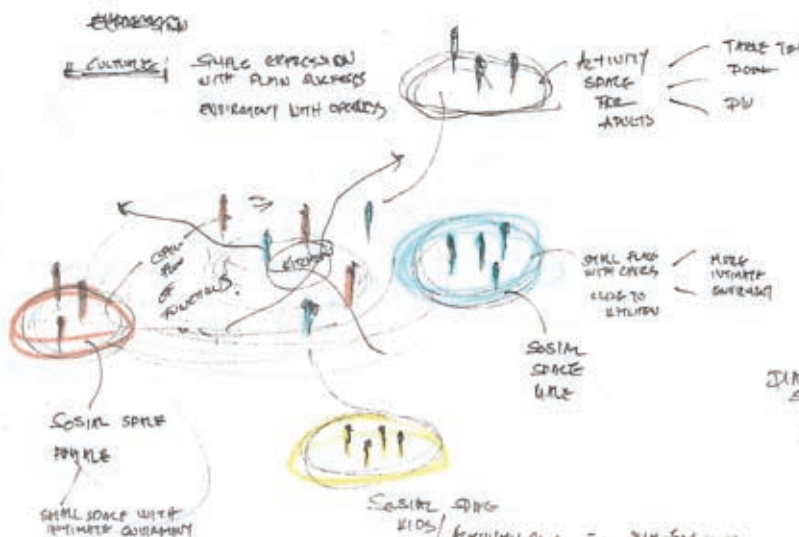 EXPRESSION
CULTURE: SIMPLE EXPRESSION
WITH PLAIN SURFACES
ENVIROMENT WITH OPENNES
ACTIVITY
SPACE
FOR
ADULTS
TABLE
POOL
KITCHEN
OF
FUNCTIONS
SMALL PLACE
WITH CHAIRS
CLOSE TO
KITCHEN
MORE
INTIMATE
SOSIAL
SPACE
MALE
SOSIAL SPACE
FEMALE
SMALL SPACE WITH
INTIMATE
SOSIAL SPACE
KIDS/